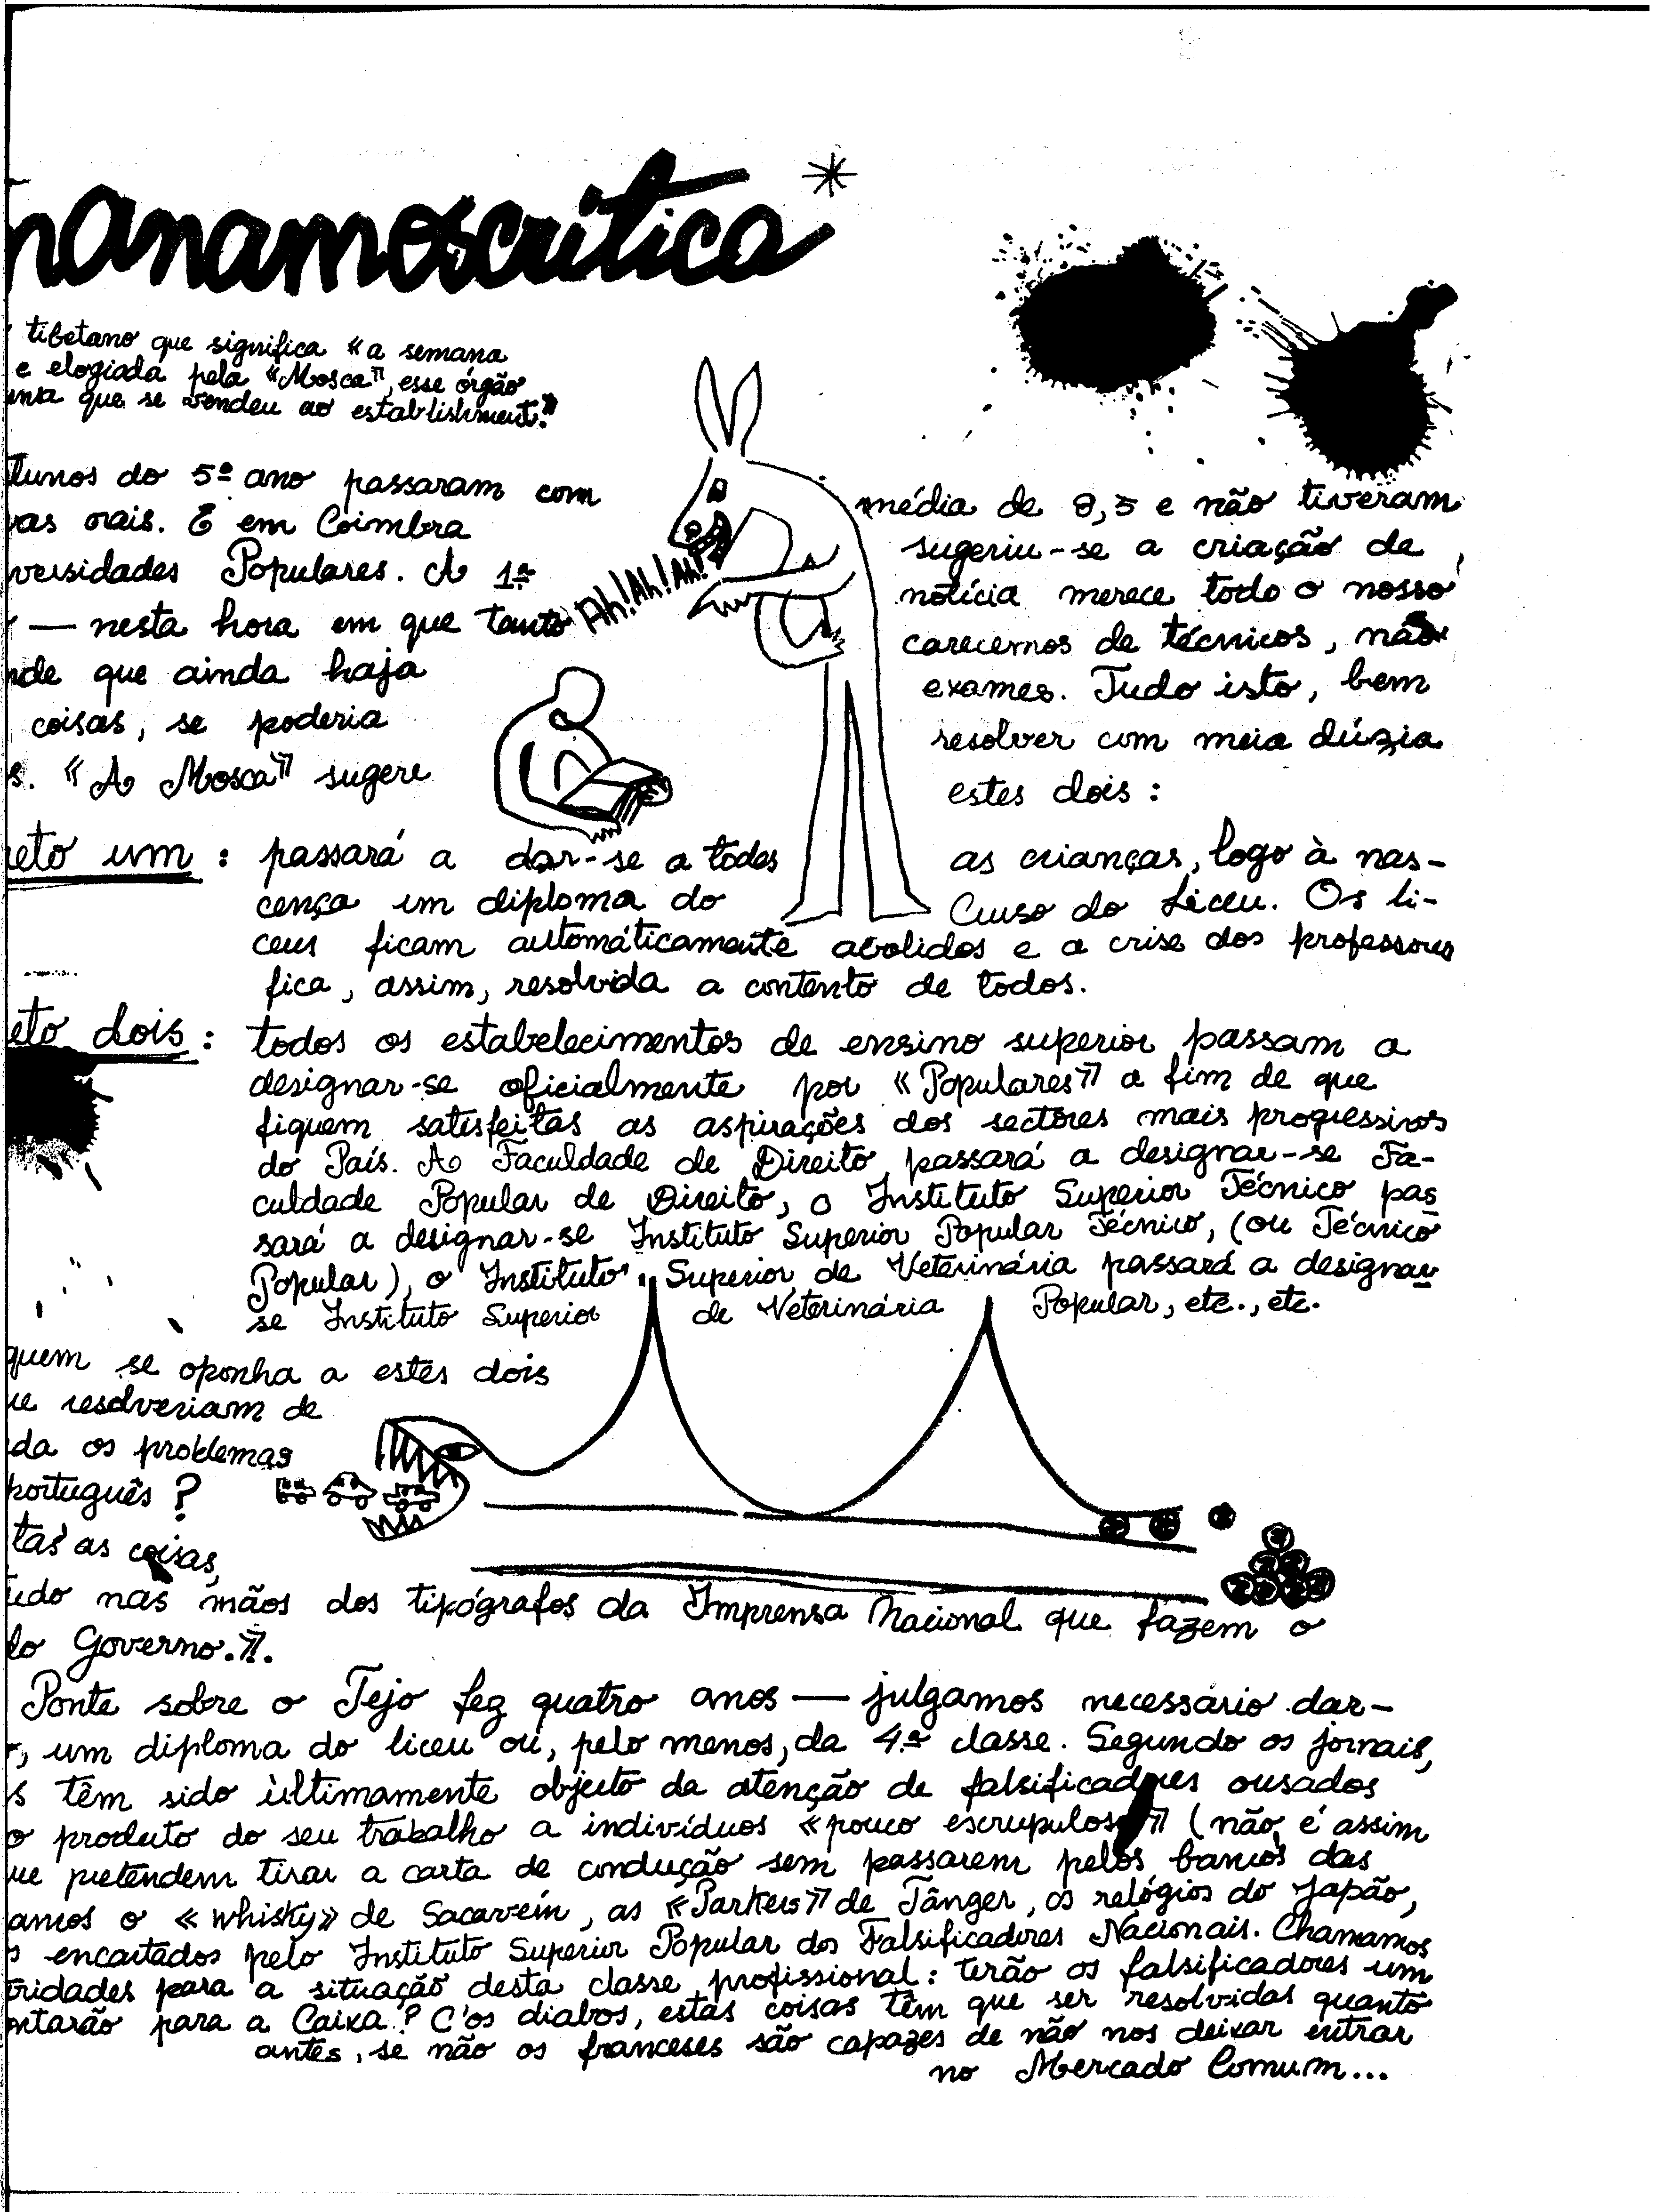 nanamoscrítica*
tibetano que significa «a semana
e elogiada pela «Mosca», esse órgão
ensa que se vendeu ao establishment.»
lunos do 5º ano passaram com média de 8,5 e não tiveram
vas orais. E em Coimbra sugeriu-se a criação de
versidades Populares. A 1ª notícia merece todo o nosso
— nesta hora em que tanto Ah! Ah! Ah! carecemos de técnicos, não
nde que ainda haja exames. Tudo isto, bem
coisas, se poderia resolver com meia dúzia
s. «A Mosca» sugere estes dois:
eto um: passará a dar-se a todas as crianças, logo à nas-
cença um diploma do Curso do Liceu. Os li-
ceus ficam automáticamente abolidos e a crise dos professores
fica, assim, resolvida a contento de todos.
eto dois: todos os estabelecimentos de ensino superior passam a
designar-se oficialmente por «Populares» a fim de que
fiquem satisfeitas as aspirações dos sectores mais progressivos
do País. A Faculdade de Direito passará a designar-se Fa-
culdade Popular de Direito, o Instituto Superior Técnico pas
sará a designar-se Instituto Superior Popular Técnico, (ou Técnico
Popular), o Instituto Superior de Veterinária passará a designar
se Instituto Superior de Veterinária Popular, etc., etc.
quem se oponha a estes dois
ue resolveriam de
da os problemas
português?
tas as coisas,
udo nas mãos dos tipógrafos da Imprensa Nacional que fazem o
do Governo.».
Ponte sobre o Tejo fez quatro anos — julgamos necessário dar-
, um diploma do liceu ou, pelo menos, da 4.ª classe. Segundo os jornais,
s têm sido ùltimamente objecto da atenção de falsificadores ousados
o produto do seu trabalho a indivíduos «pouco escrupulosos» (não é assim
ue pretendem tirar a carta de condução sem passarem pelos bancos das
amos o «whisky» de Sacavém, as «Parkers» de Tânger, os relógios do Japão,
s encartados pelo Instituto Superior Popular dos Falsificadores Nacionais. Chamamos
oridades para a situação desta classe profissional: terão os falsificadores um
ntarão para a Caixa? C'os diabos, estas coisas têm que ser resolvidas quanto
antes, se não os franceses são capazes de não nos deixar entrar
no Mercado Comum...